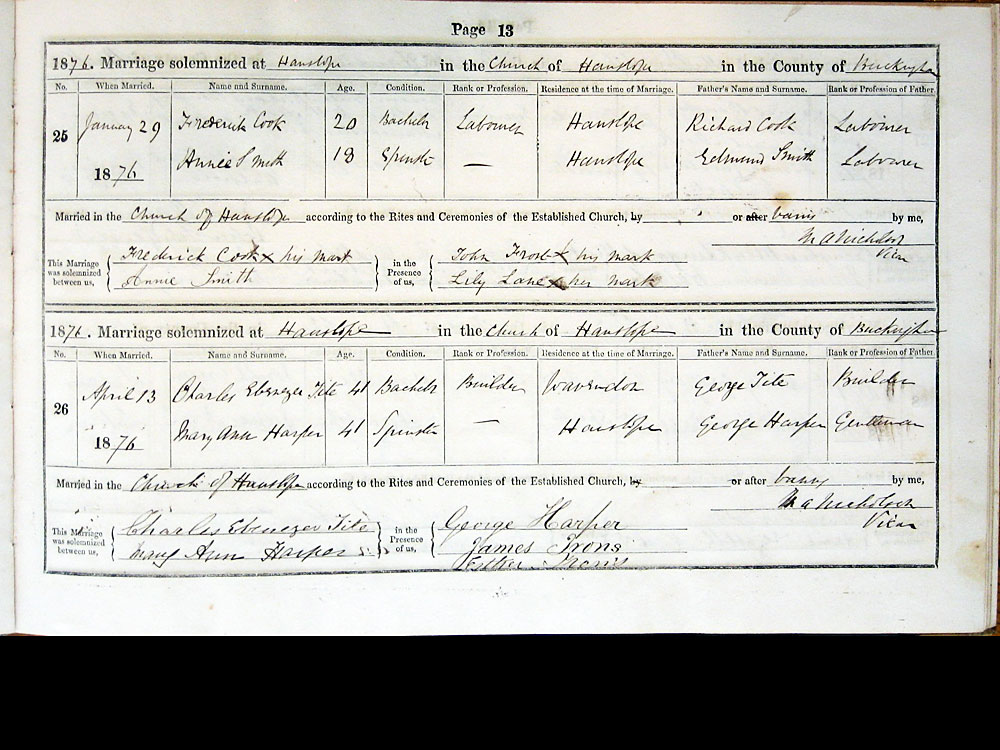 Page 13
1876. Marriage solemnized at Hanslope in the Church of Hanslope in the County of Buckingham
No. When Married. Name and Surname. Age. Condition. Rank or Profession. Residence at the time of Marriage. Father's Name and Surname. Rank or Profession of Father.
25 January 29 Frederick Cook 20 Bachelor Labourer Hanslope Richard Cook Labourer
1876 Annie Smith 18 Spinster — Hanslope Edmund Smith Labourer
Married in the Church of Hanslope according to the Rites and Ceremonies of the Established Church, by or after banns by me,
M A Nicholson
Vicar
This Marriage was solemnized between us, Frederick Cook x his mark in the Presence of us, John Frost x his mark
Annie Smith Lily Lane x her mark
1876. Marriage solemnized at Hanslope in the Church of Hanslope in the County of Buckingham
No. When Married. Name and Surname. Age. Condition. Rank or Profession. Residence at the time of Marriage. Father's Name and Surname. Rank or Profession of Father.
26 April 13 Charles Ebenezer Tite 41 Bachelor Builder Wavendon George Tite Builder
1876 Mary Ann Harper 41 Spinster — Hanslope George Harper Gentleman
Married in the Church of Hanslope according to the Rites and Ceremonies of the Established Church, by or after banns by me,
M A Nicholson
Vicar
This Marriage was solemnized between us, Charles Ebenezer Tite in the Presence of us, George Harper
Mary Ann Harper James Irons
Esther Irons